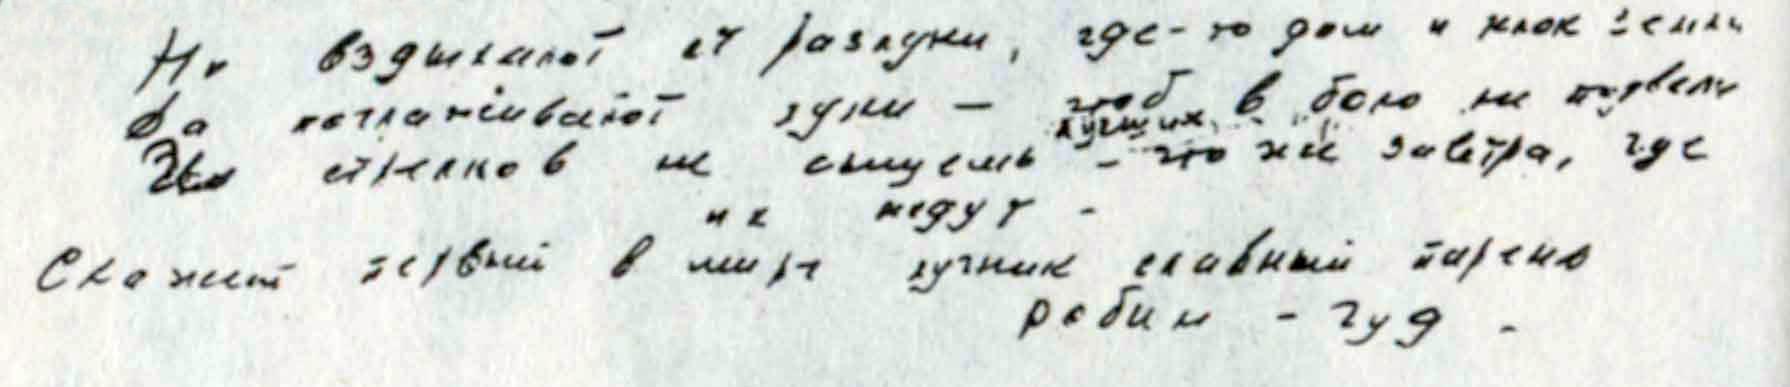 Но вздыхают от разлуки, где-то дом и клок земли
Да поглаживают луки — чтоб в бою не подвели
лучших
стрелков не сыщешь - что же завтра, где
их ждут -
Скажет первый в мире лучник славный парень
робин - гуд -